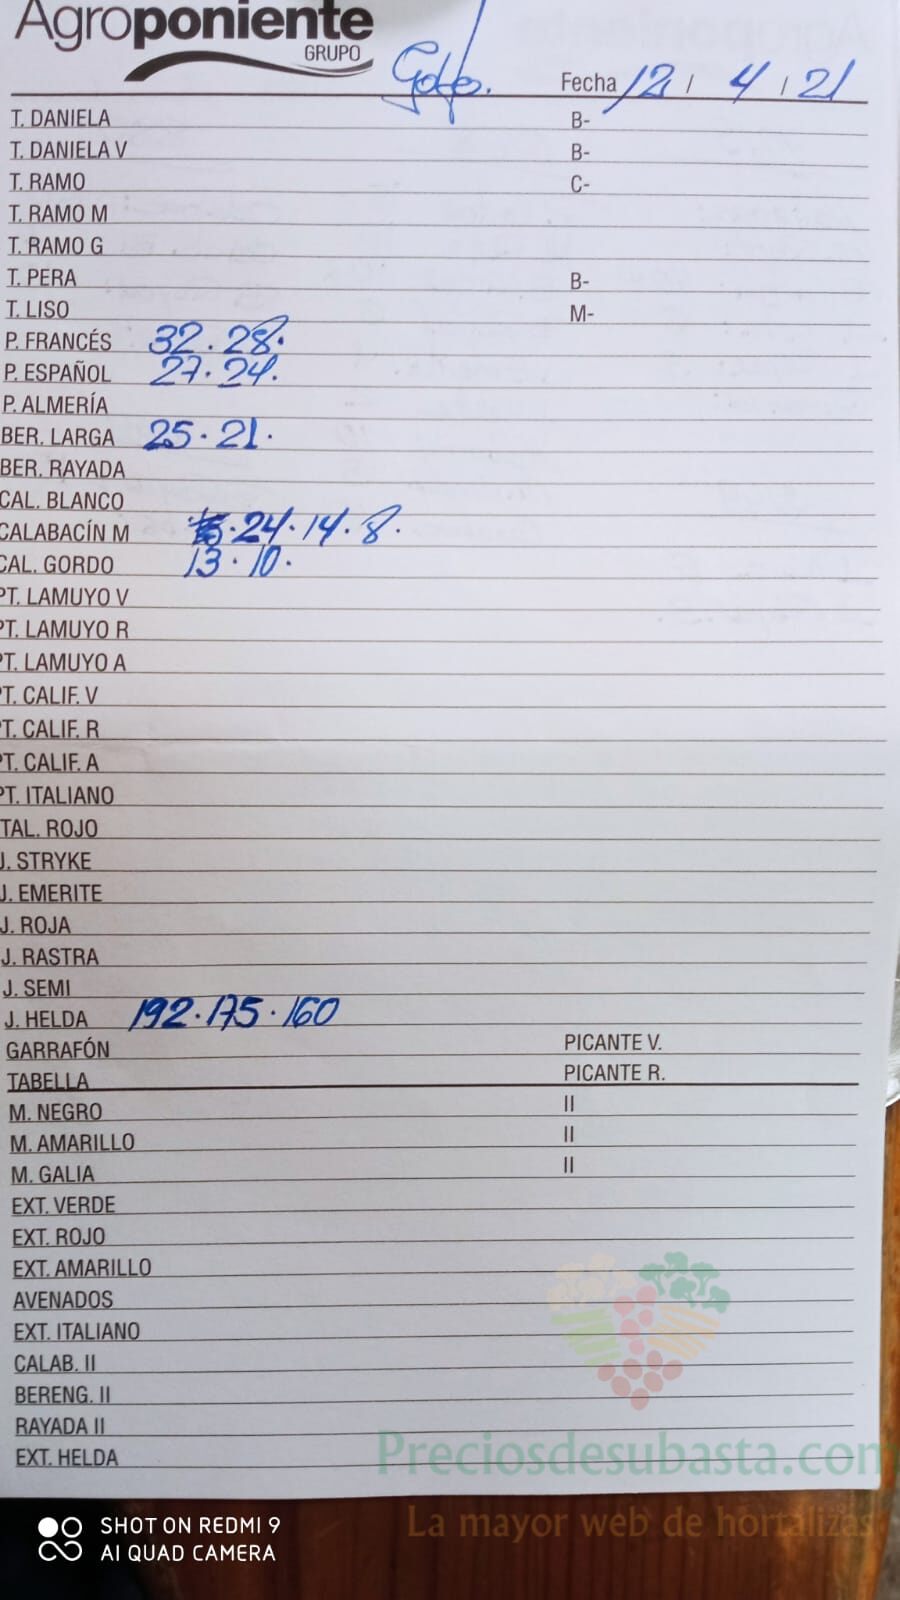 Agroponiente
GRUPO
Fecha 12 / 4 / 21
T. DANIELA B-
T. DANIELA V B-
T. RAMO C-
T. RAMO M
T. RAMO G
T. PERA B-
T. LISO M-
P. FRANCÉS 32 · 28.
P. ESPAÑOL 27 · 24.
P. ALMERÍA
BER. LARGA 25 · 21.
BER. RAYADA
CAL. BLANCO
CALABACÍN M · 24 · 14 · 8.
CAL. GORDO 13 · 10.
PT. LAMUYO V
PT. LAMUYO R
PT. LAMUYO A
PT. CALIF. V
PT. CALIF. R
PT. CALIF. A
PT. ITALIANO
TAL. ROJO
J. STRYKE
J. EMERITE
J. ROJA
J. RASTRA
J. SEMI
J. HELDA 192 · 175 · 160
GARRAFÓN PICANTE V.
TABELLA PICANTE R.
M. NEGRO II
M. AMARILLO II
M. GALIA II
EXT. VERDE
EXT. ROJO
EXT. AMARILLO
AVENADOS
EXT. ITALIANO
CALAB. II
BERENG. II
RAYADA II
EXT. HELDA
Preciosdesubasta.com
La mayor web de hortalizas
SHOT ON REDMI 9
AI QUAD CAMERA